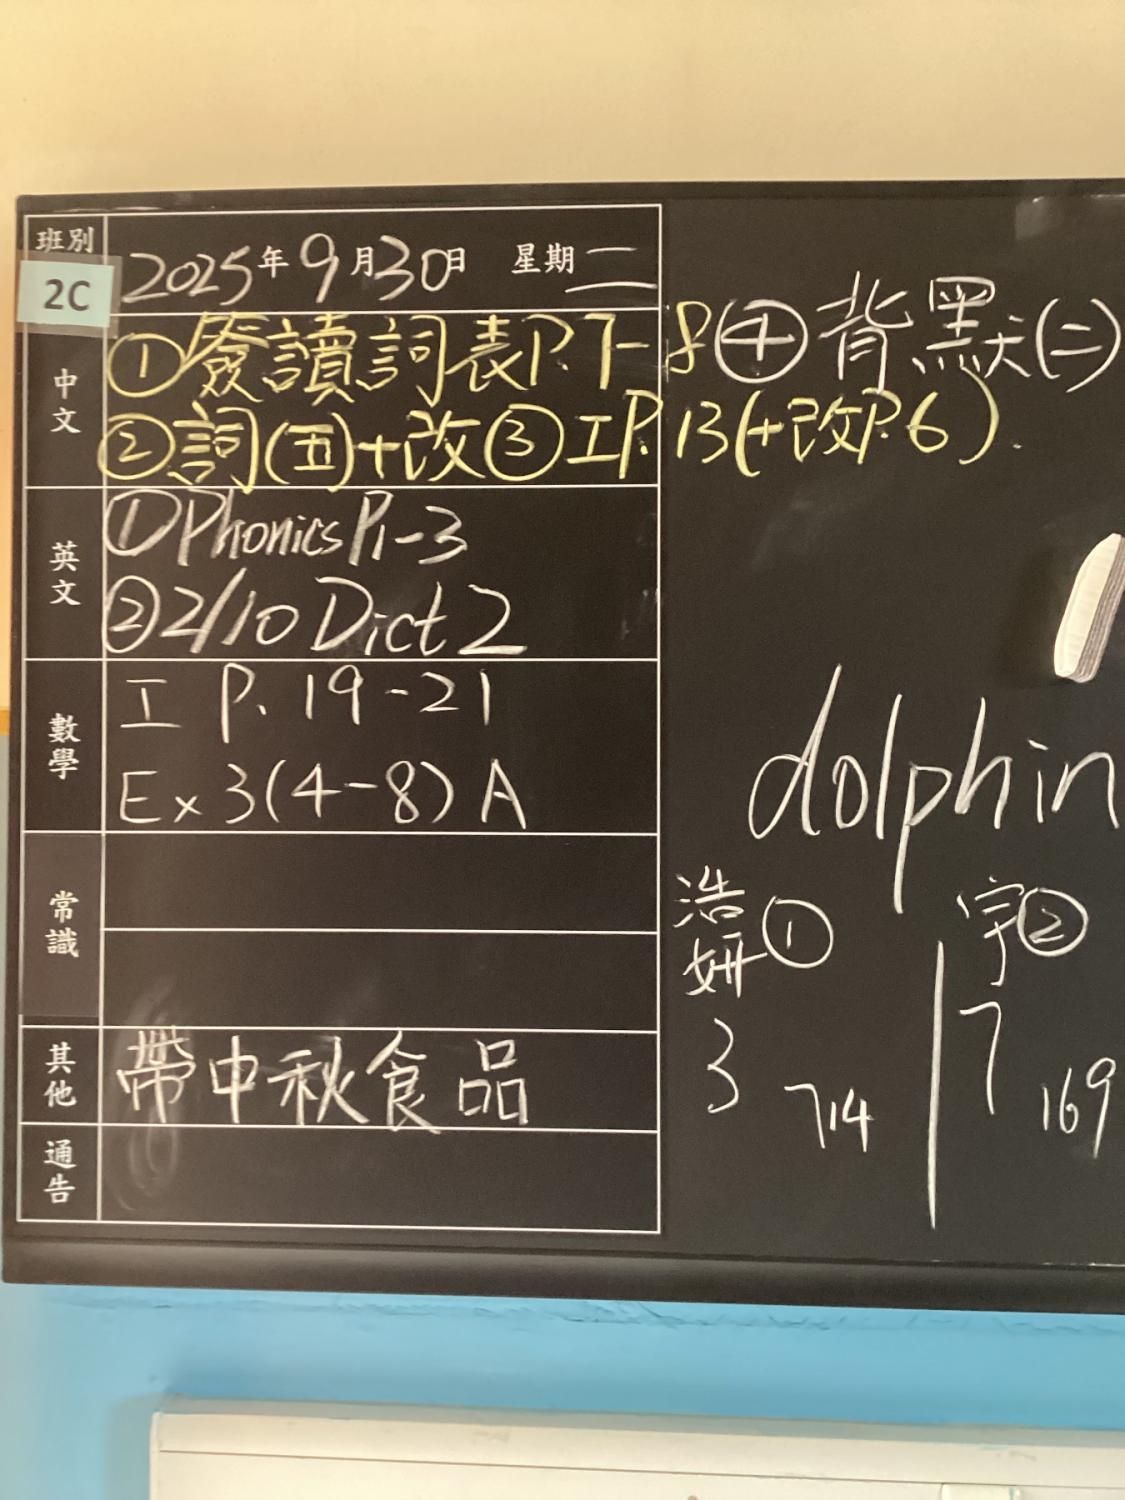 班別
2C
2025年9月30日 星期二
中文
①簽讀詞表P.7-8 ④背默(二)
②詞(五)+改③工P.13(+改P.6).
英文
①Phonics P1-3
②2/10 Dict 2
數學
工 P. 19-21
Ex 3(4-8) A
dolphin
常識
浩妍①
宇②
3 714
7 169
其他
帶中秋食品
通告